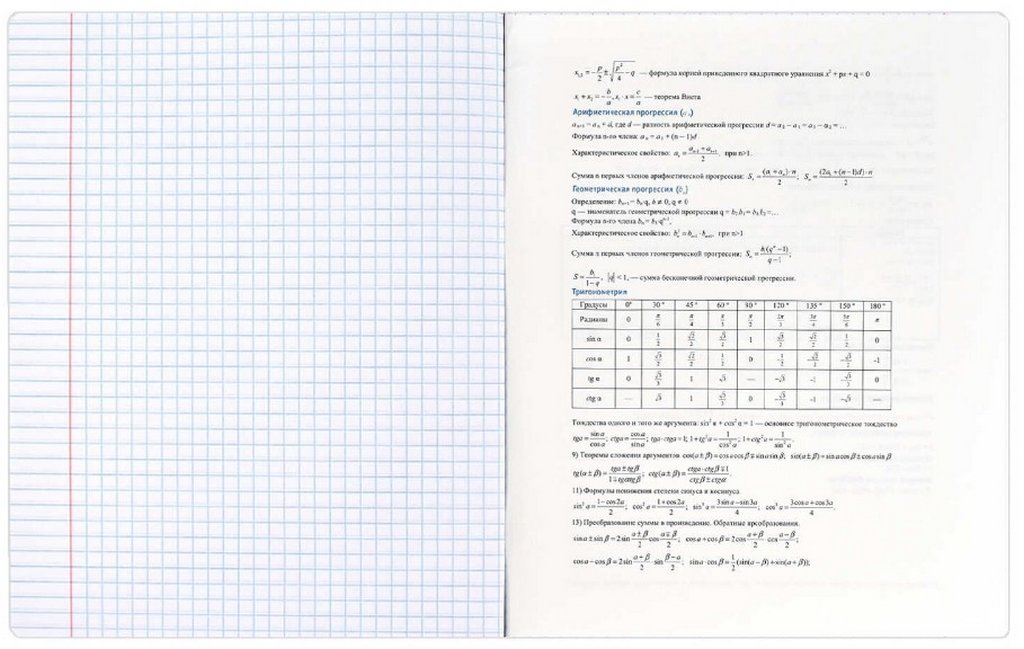 x₁,₂ = −p/2 ± √(p²/4 − q) — формула корней приведенного квадратного уравнения x² + px + q = 0
x₁ + x₂ = −b/a, x₁ · x = c/a — теорема Виета
Арифметическая прогрессия (aₙ)
aₙ₊₁ = aₙ + d, где d — разность арифметической прогрессии d = a₂ − a₁ = a₃ − a₂ = …
Формула n-го члена: aₙ = a₁ + (n − 1)d
Характеристическое свойство: aₙ = (aₙ₋₁ + aₙ₊₁)/2, при n>1.
Сумма n первых членов арифметической прогрессии: Sₙ = (a₁ + aₙ)·n/2; Sₙ = (2a₁ + (n−1)d)·n/2
Геометрическая прогрессия (bₙ)
Определение: bₙ₊₁ = bₙ·q, b ≠ 0, q ≠ 0
q — знаменатель геометрической прогрессии
Формула n-го члена bₙ = b₁·qⁿ⁻¹,
Характеристическое свойство: bₙ² = bₙ₋₁ · bₙ₊₁, при n>1
Сумма n первых членов геометрической прогрессии: Sₙ = b₁(qⁿ −1)/(q −1);
S = b₁/(1−q), |q| < 1, — сумма бесконечной геометрической прогрессии.
Тригонометрия
Градусы 0° 30° 45° 60° 90° 120° 135° 150° 180°
Радианы 0 π/6 π/4 π/3 π/2 2π/3 3π/4 5π/6 π
sin α 0 1/2 √2/2 √3/2 1 √3/2 √2/2 1/2 0
cos α 1 √3/2 √2/2 1/2 0 -1/2 -√2/2 -√3/2 -1
tg α 0 √3/3 1 √3 — -√3 -1 -√3/3 0
ctg α — √3 1 √3/3 0 -√3/3 -1 -√3 —
Тождества одного и того же аргумента: sin² α + cos² α = 1 — основное тригонометрическое тождество
tgα = sin α/cos α; ctgα = cos α/sin α; tgα · ctgα = 1; 1 + tg²α = 1/cos² α; 1 + ctg²α = 1/sin² α.
9) Теоремы сложения аргументов cos(α ± β) = cos α cos β ∓ sin α sin β; sin(α ± β) = sin α cos β ± cos α sin β
tg(α ± β) = (tgα ± tgβ)/(1 ∓ tgαtgβ); ctg(α ± β) = (ctgα · ctgβ ∓ 1)/(ctgβ ± ctgα)
11) Формулы понижения степени синуса и косинуса
sin² α = (1 − cos2α)/2; cos² α = (1 + cos2α)/2; sin³ α = (3sin α − sin3α)/4; cos³ α = (3cos α + cos3α)/4.
13) Преобразование суммы в произведение. Обратные преобразования.
sin α ± sin β = 2sin (α ± β)/2 cos (α ∓ β)/2; cos α + cos β = 2cos (α + β)/2 · cos (α − β)/2;
cos α − cos β = 2sin (α + β)/2 · sin (β − α)/2; sin α · cos β = 1/2 (sin(α − β) + sin(α + β));